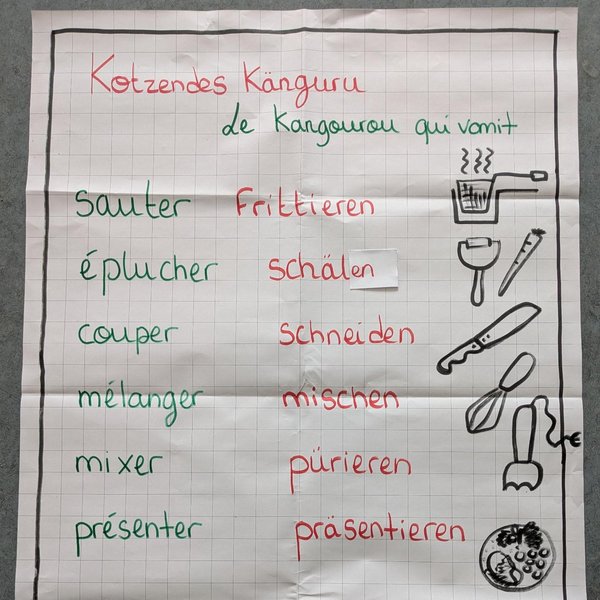 Kotzendes Känguru
de Kangourou qui vomit
sauter Frittieren
éplucher schälen
couper schneiden
mélanger mischen
mixer pürieren
présenter präsentieren